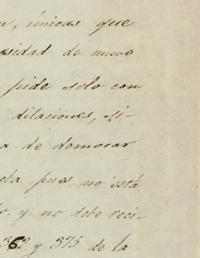 n, únicas que
sidad de nuevo
pide solo con
dilaciones, si-
a de demorar
pues no está
y no debe reci-
362 y 375 de la